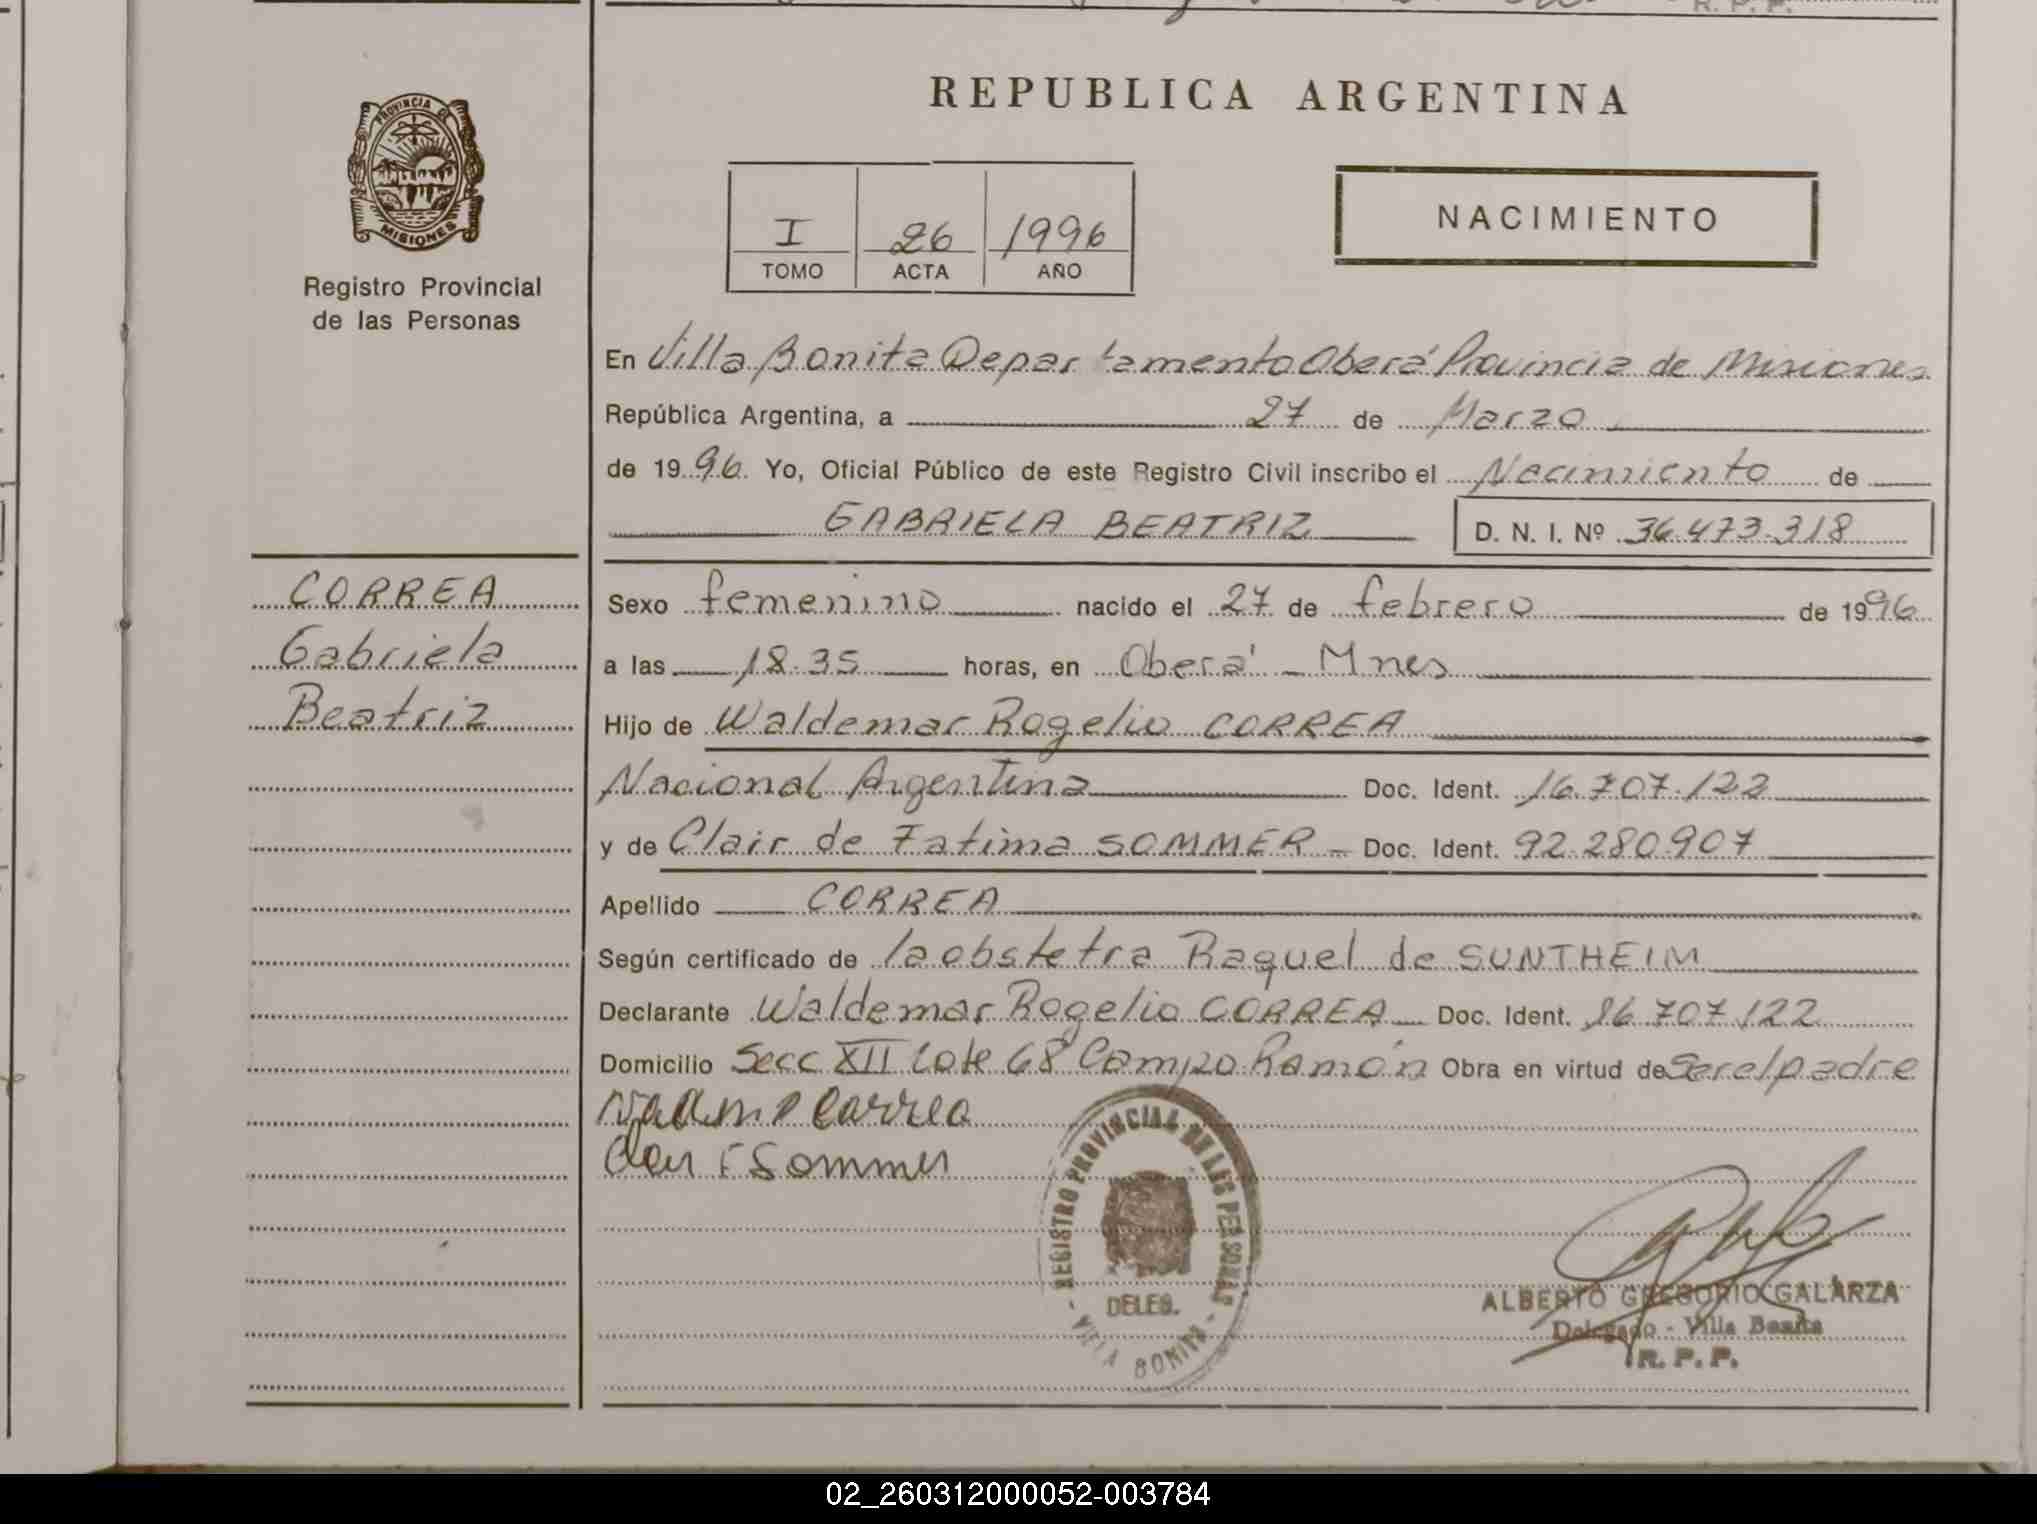 R. P. P.
PROVINCIA DE
MISIONES
Registro Provincial
de las Personas
REPUBLICA ARGENTINA
I 26 1996
TOMO ACTA AÑO
NACIMIENTO
En Villa Bonita Departamento Oberá Provincia de Misiones
República Argentina, a 27 de Marzo
de 1996. Yo, Oficial Público de este Registro Civil inscribo el Nacimiento de
GABRIELA BEATRIZ D. N. I. Nº 36.473.318
CORREA
Gabriela
Beatriz
Sexo femenino nacido el 27 de febrero de 1996
a las 18.35 horas, en Oberá - Mnes
Hijo de Waldemar Rogelio CORREA
Nacional Argentina Doc. Ident. 16.707.122
y de Clair de Fatima SOMMER - Doc. Ident. 92.280.907
Apellido CORREA
Según certificado de la obstetra Raquel de SUNTHEIM
Declarante Waldemar Rogelio CORREA Doc. Ident. 16.707.122
Domicilio Secc XII Lote 68 Campo Ramón Obra en virtud de Ser el padre
Correa
Sommer
REGISTRO PROVINCIAL DE LAS PERSONAS
DELEG.
- VILLA BONITA -
ALBERTO GREGORIO GALARZA
Delegado - Villa Bonita
R. P. P.
02_260312000052-003784